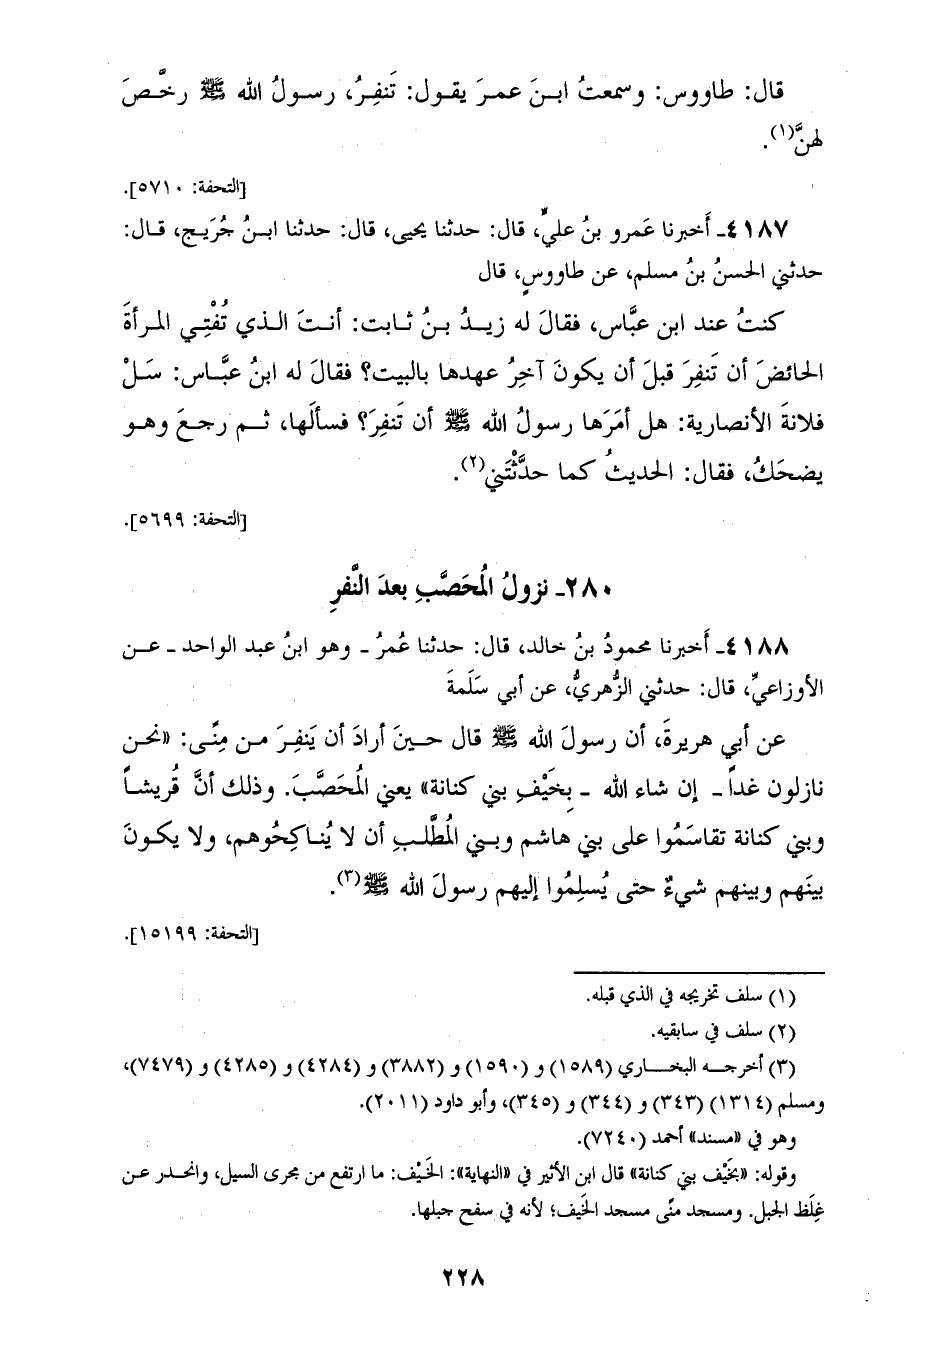 قال: طاووس: وسمعتُ ابنَ عمرَ يقول: تَنفِرُ، رسولُ الله ﷺ رخَّصَ
لهنَّ(١).
[التحفة: ٥٧١٠].
٤١٨٧ـ أَخبرنا عَمرو بنُ عليٍّ، قال: حدثنا يحيى، قال: حدثنا ابنُ جُرَيج، قال:
حدثني الحسنُ بنُ مسلم، عن طاووسٍ، قال
كنتُ عند ابن عبَّاس، فقالَ له زيدُ بنُ ثابت: أنتَ الذي تُفْتِي المرأةَ
الحائضَ أن تَنفِرَ قبلَ أن يكونَ آخِرُ عهدها بالبيت؟ فقالَ له ابنُ عبَّاس: سَلْ
فلانةَ الأنصارية: هل أمَرَها رسولُ الله ﷺ أن تَنفِرَ؟ فسألَها، ثم رجعَ وهو
يضحَكُ، فقال: الحديثُ كما حدَّثْتَني(٢).
[التحفة: ٥٦٩٩].
٢٨٠ـ نزولُ المُحَصَّبِ بعدَ النَّفرِ
٤١٨٨ـ أَخبرنا محمودُ بنُ خالد، قال: حدثنا عُمرُ ـ وهو ابنُ عبد الواحد ـ عن
الأوزاعيِّ، قال: حدثني الزُّهريُّ، عن أبي سَلَمةَ
عن أبي هريرةَ، أن رسولَ الله ﷺ قال حينَ أرادَ أن يَنفِرَ من مِنًى: «نحن
نازلون غداً ـ إن شاء الله ـ بِخَيْفِ بني كنانة» يعني المُحَصَّبَ. وذلك أنَّ قُريشاً
وبني كنانة تقاسَمُوا على بني هاشم وبني المُطَّلبِ أن لا يُناكِحُوهم، ولا يكونَ
بينَهم وبينهم شيءٌ حتى يُسلِمُوا إليهم رسولَ الله ﷺ(٣).
[التحفة: ١٥١٩٩].
(١) سلف تخريجه في الذي قبله.
(٢) سلف في سابقيه.
(٣) أخرجه البخاري (١٥٨٩) و (١٥٩٠) و (٣٨٨٢) و (٤٢٨٤) و (٤٢٨٥) و (٧٤٧٩)،
ومسلم (١٣١٤) (٣٤٣) و (٣٤٤) و (٣٤٥)، وأبو داود (٢٠١١).
وهو في «مسند» أحمد (٧٢٤٠).
وقوله: «بخَيْف بني كنانة» قال ابن الأثير في «النهاية»: الخَيْف: ما ارتفع من مجرى السيل، وانحدر عن
غِلَظ الجبل. ومسجد منًى مسجد الخَيف؛ لأنه في سفح جبلها.
٢٢٨